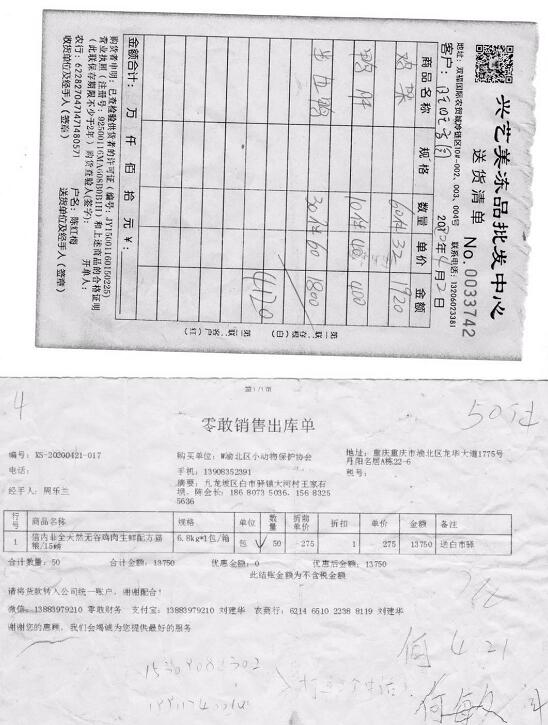 兴艺美冻品批发中心
送货清单 No.0033742
地址：双福国际农贸城冷链区10#-002、003、004号 联系电话：13206023381
客户： 2020年4月2日
商品名称 规格 数量 单价 金额
鸡架 60件 32 1920
鸭肝 10件 40 400
30件 60 1800
4120
金额合计： 万 仟 佰 拾 元 ￥：
购货者申明：已查检验供货者的许可证（编号：JY15001160150225）
营业执照（注册号：）和上述商品的合格证明
（此联保存期限不少于2年）购货查验人(签字)： 开单人：
农行：6228270471471480571 户名：陈红梅
收货单位及经手人（签章） 送货单位及经手人（签章）
第一联：存根（白） 第二联：客户（红）
第1/1页
4
零敢销售出库单
50件
编号：XS-20200421-017 购买单位：W渝北区小动物保护协会 地址：重庆重庆市渝北区龙华大道1775号
丹阳名居A栋22-6
电话： 手机：13908352391 税号：
经手人：周乐兰 摘要：九龙坡区白市驿镇大河村王家石
坝，陈会长：186 8073 5036、156 8325
5636
行号 商品名称 规格 单位 数量 折前单价 折扣 单价 金额 备注
1 信内非全天然无谷鸡肉生鲜配方猫粮/15磅 6.8kg*1包/箱 包 50 275 1 275 13750 送白市驿
合计数量：50 合计金额：13750 优惠金额：0 优惠后金额：13750
此结账金额为不含税金额
请将货款转入公司统一账户，谢谢配合！
微信：13883979210 零敢财务 支付宝：13883979210 刘建华 农商行：6214 6510 2238 8119 刘建华
谢谢您的惠顾，我们会竭诚为您提供最好的服务
4.21